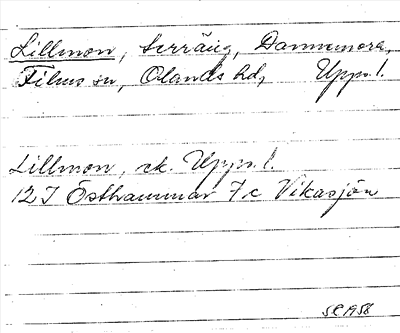 Lillmon, terräng, Dannemora,
Films sn, Olands hd, Upps.l.
Lillmon, ek. Upps.l.
12I Östhammar 7c Vikasjön
1958